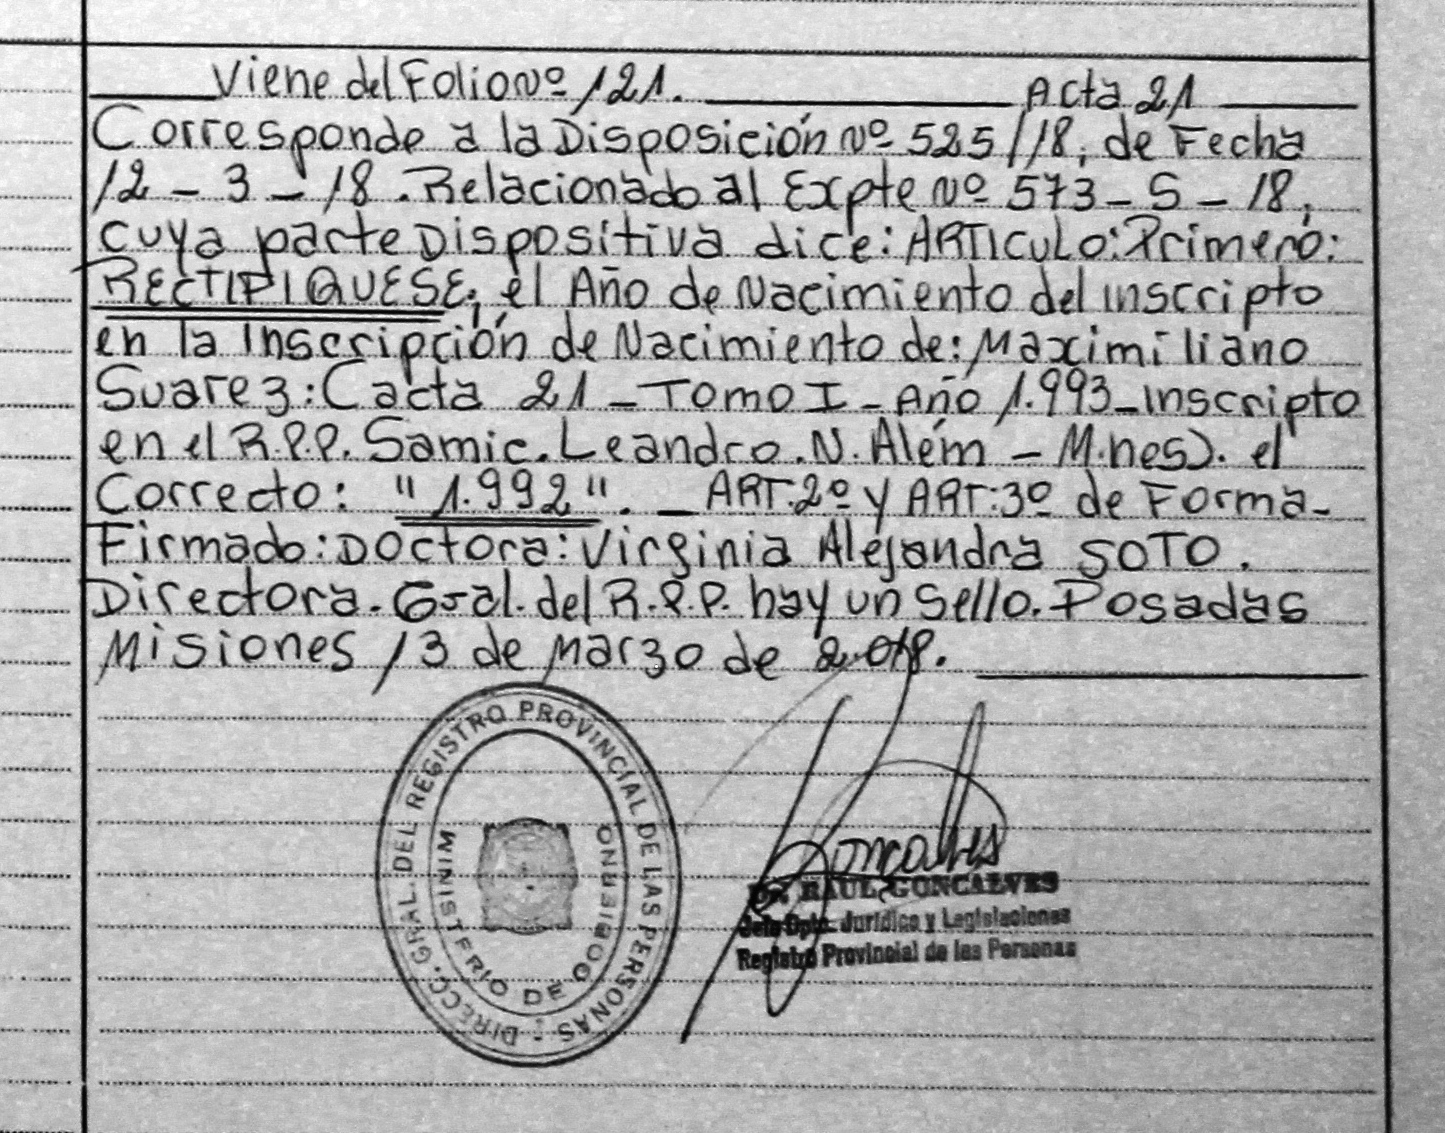 Viene del Folio Nº 121. Acta 21
Corresponde a la Disposición Nº 525/18, de Fecha
12 - 3 - 18. Relacionado al Expte Nº 573 - S - 18,
cuya parte Dispositiva dice: ARTICULO: Primero:
RECTIFIQUESE, el Año de Nacimiento del inscripto
en la Inscripción de Nacimiento de: Maximiliano
Suarez: (acta 21 - Tomo I - Año 1.993 - Inscripto
en el R.P.P. Samic. Leandro. N. Além - M.nes). el
Correcto: "1.992". _ ART: 2º y ART: 3º de Forma-
Firmado: Doctora: Virginia Alejandra SOTO.
Directora. Gral. del R.P.P. hay un Sello. Posadas
Misiones 13 de Marzo de 2.018.
DIRECC. GRAL. DEL REGISTRO PROVINCIAL DE LAS PERSONAS
MINISTERIO DE GOBIERNO
Goncalves
Dr. RAUL GONCALVES
Jefe Dpto. Jurídico y Legislaciones
Registro Provincial de las Personas